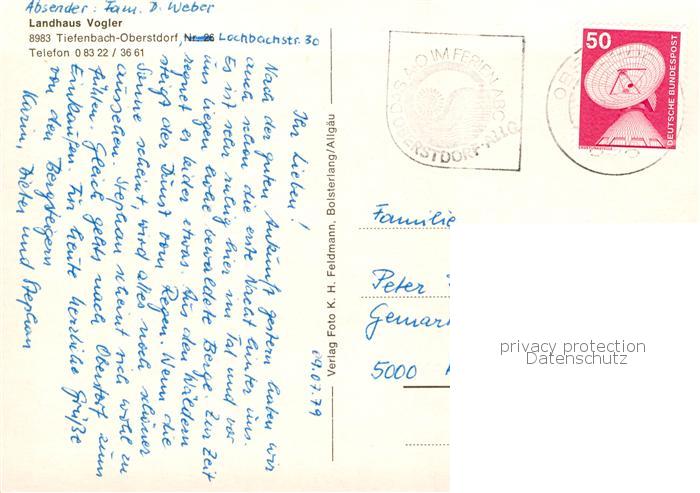 Absender: Fam. D. Weber
Landhaus Vogler
8983 Tiefenbach-Oberstdorf, Nr. 26 Lochbachstr. 30
Telefon 0 83 22 / 36 61
09.07.79
Ihr Lieben!
Nach der guten Ankunft gestern haben wir
auch schon die erste Nacht hinter uns.
Es ist sehr ruhig hier im Tal und vor
uns liegen hohe bewaldete Berge. Zur Zeit
regnet es leider etwas. Aus den Wäldern
steigt der Dunst vom Regen. Wenn die
Sonne scheint, wird alles noch schöner
aussehen. Stephan scheint sich wohl zu
fühlen. Gleich gehts nach Oberstorf zum
Einkaufen. Für heute herzliche Grüße
von den Bergsteigern
Karin, Dieter und Stephan
Verlag Foto K. H. Feldmann, Bolsterlang/Allgäu
IM FERIEN ABC
ERSTDORF
50
DEUTSCHE BUNDESPOST
Familie
Peter
Gemar
5000
privacy protection
Datenschutz